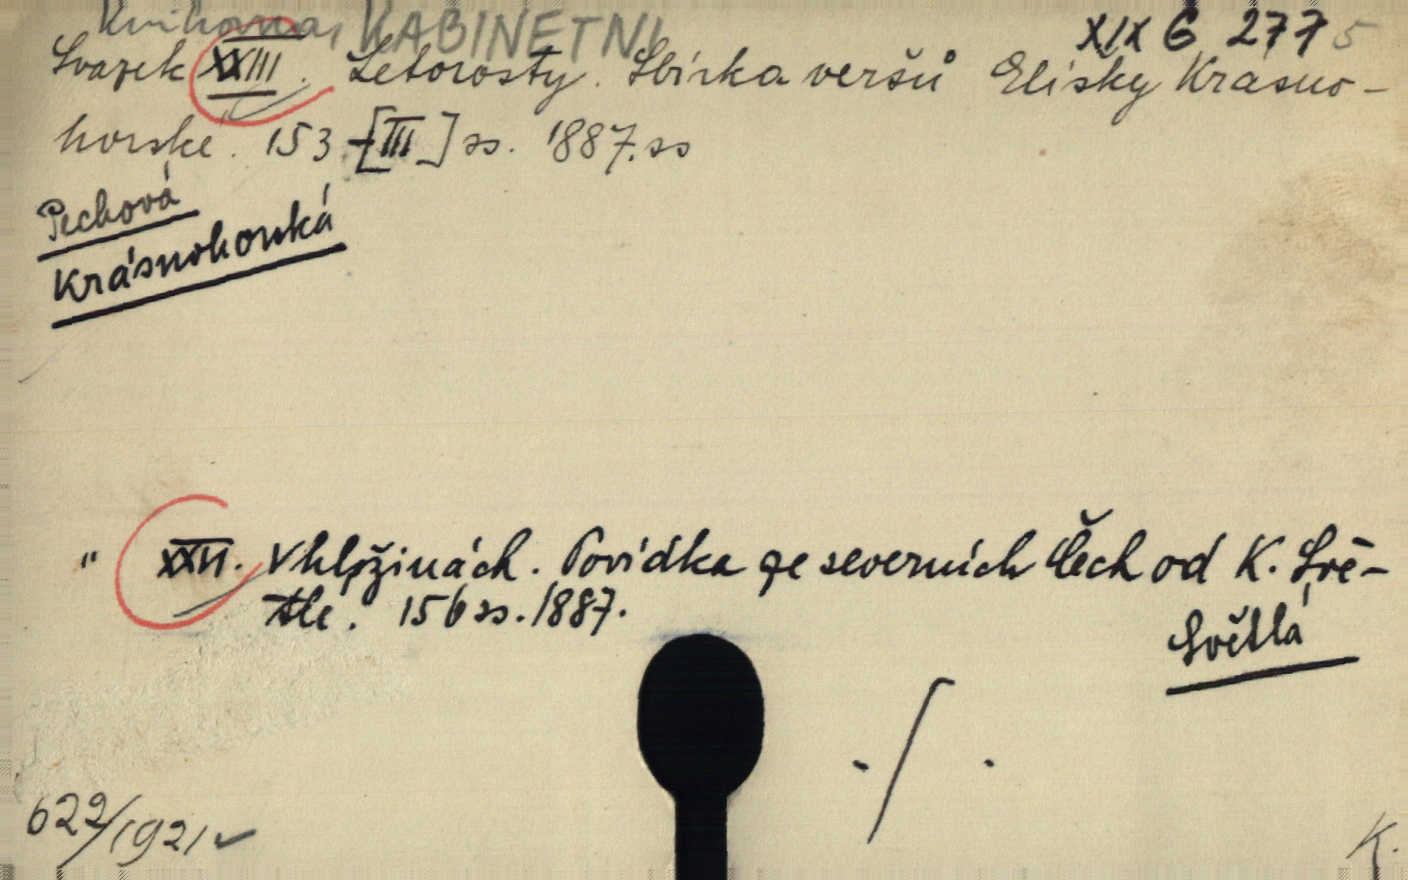 Knihovna KABINETNI XIX G 277 5
Svazek XXIII. Letorosty. Sbírka veršů Elišky Krásno-
horské. 153-[III] ss. 1887. ss
Pechová
Krásnohorská
" XXVI. V hložinách. Povídka ze severních Čech od K. Svě-
tlé. 156 ss. 1887.
Světlá
./.
622/1921
K.